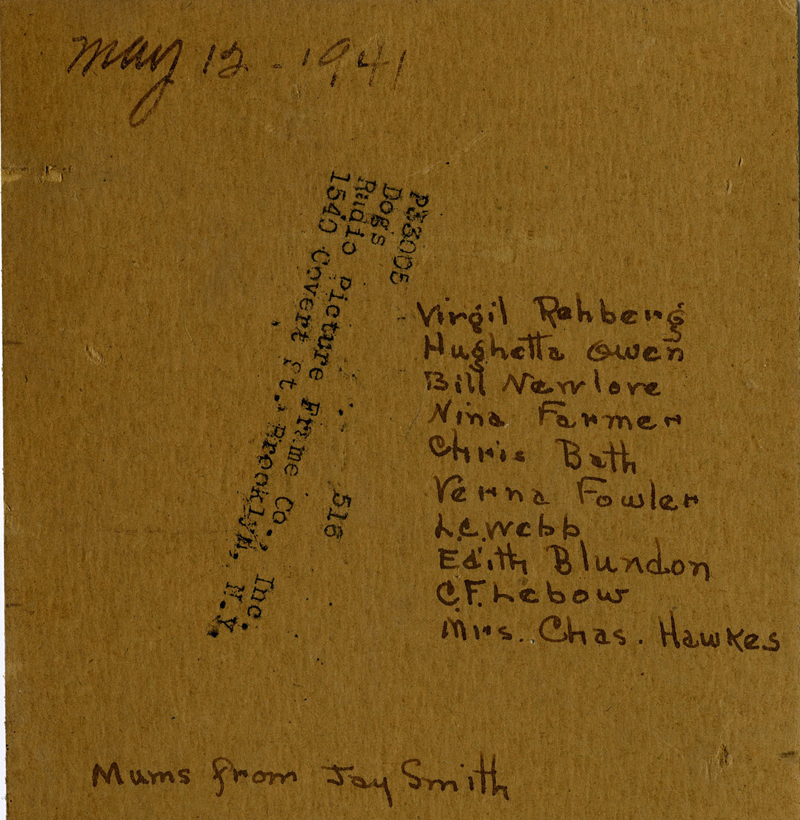 May 12 - 1941
P33005
Dogs
Rudio Picture Frame Co., Inc.
1540 Covert St. Brooklyn, N.Y.
516
Virgil Rehberg
Hughetta Owen
Bill Newlove
Nina Farmer
Chris Bath
Verna Fowler
L.C. Webb
Edith Blundon
C.F. Lebow
Mrs. Chas. Hawkes
Mums from Jay Smith